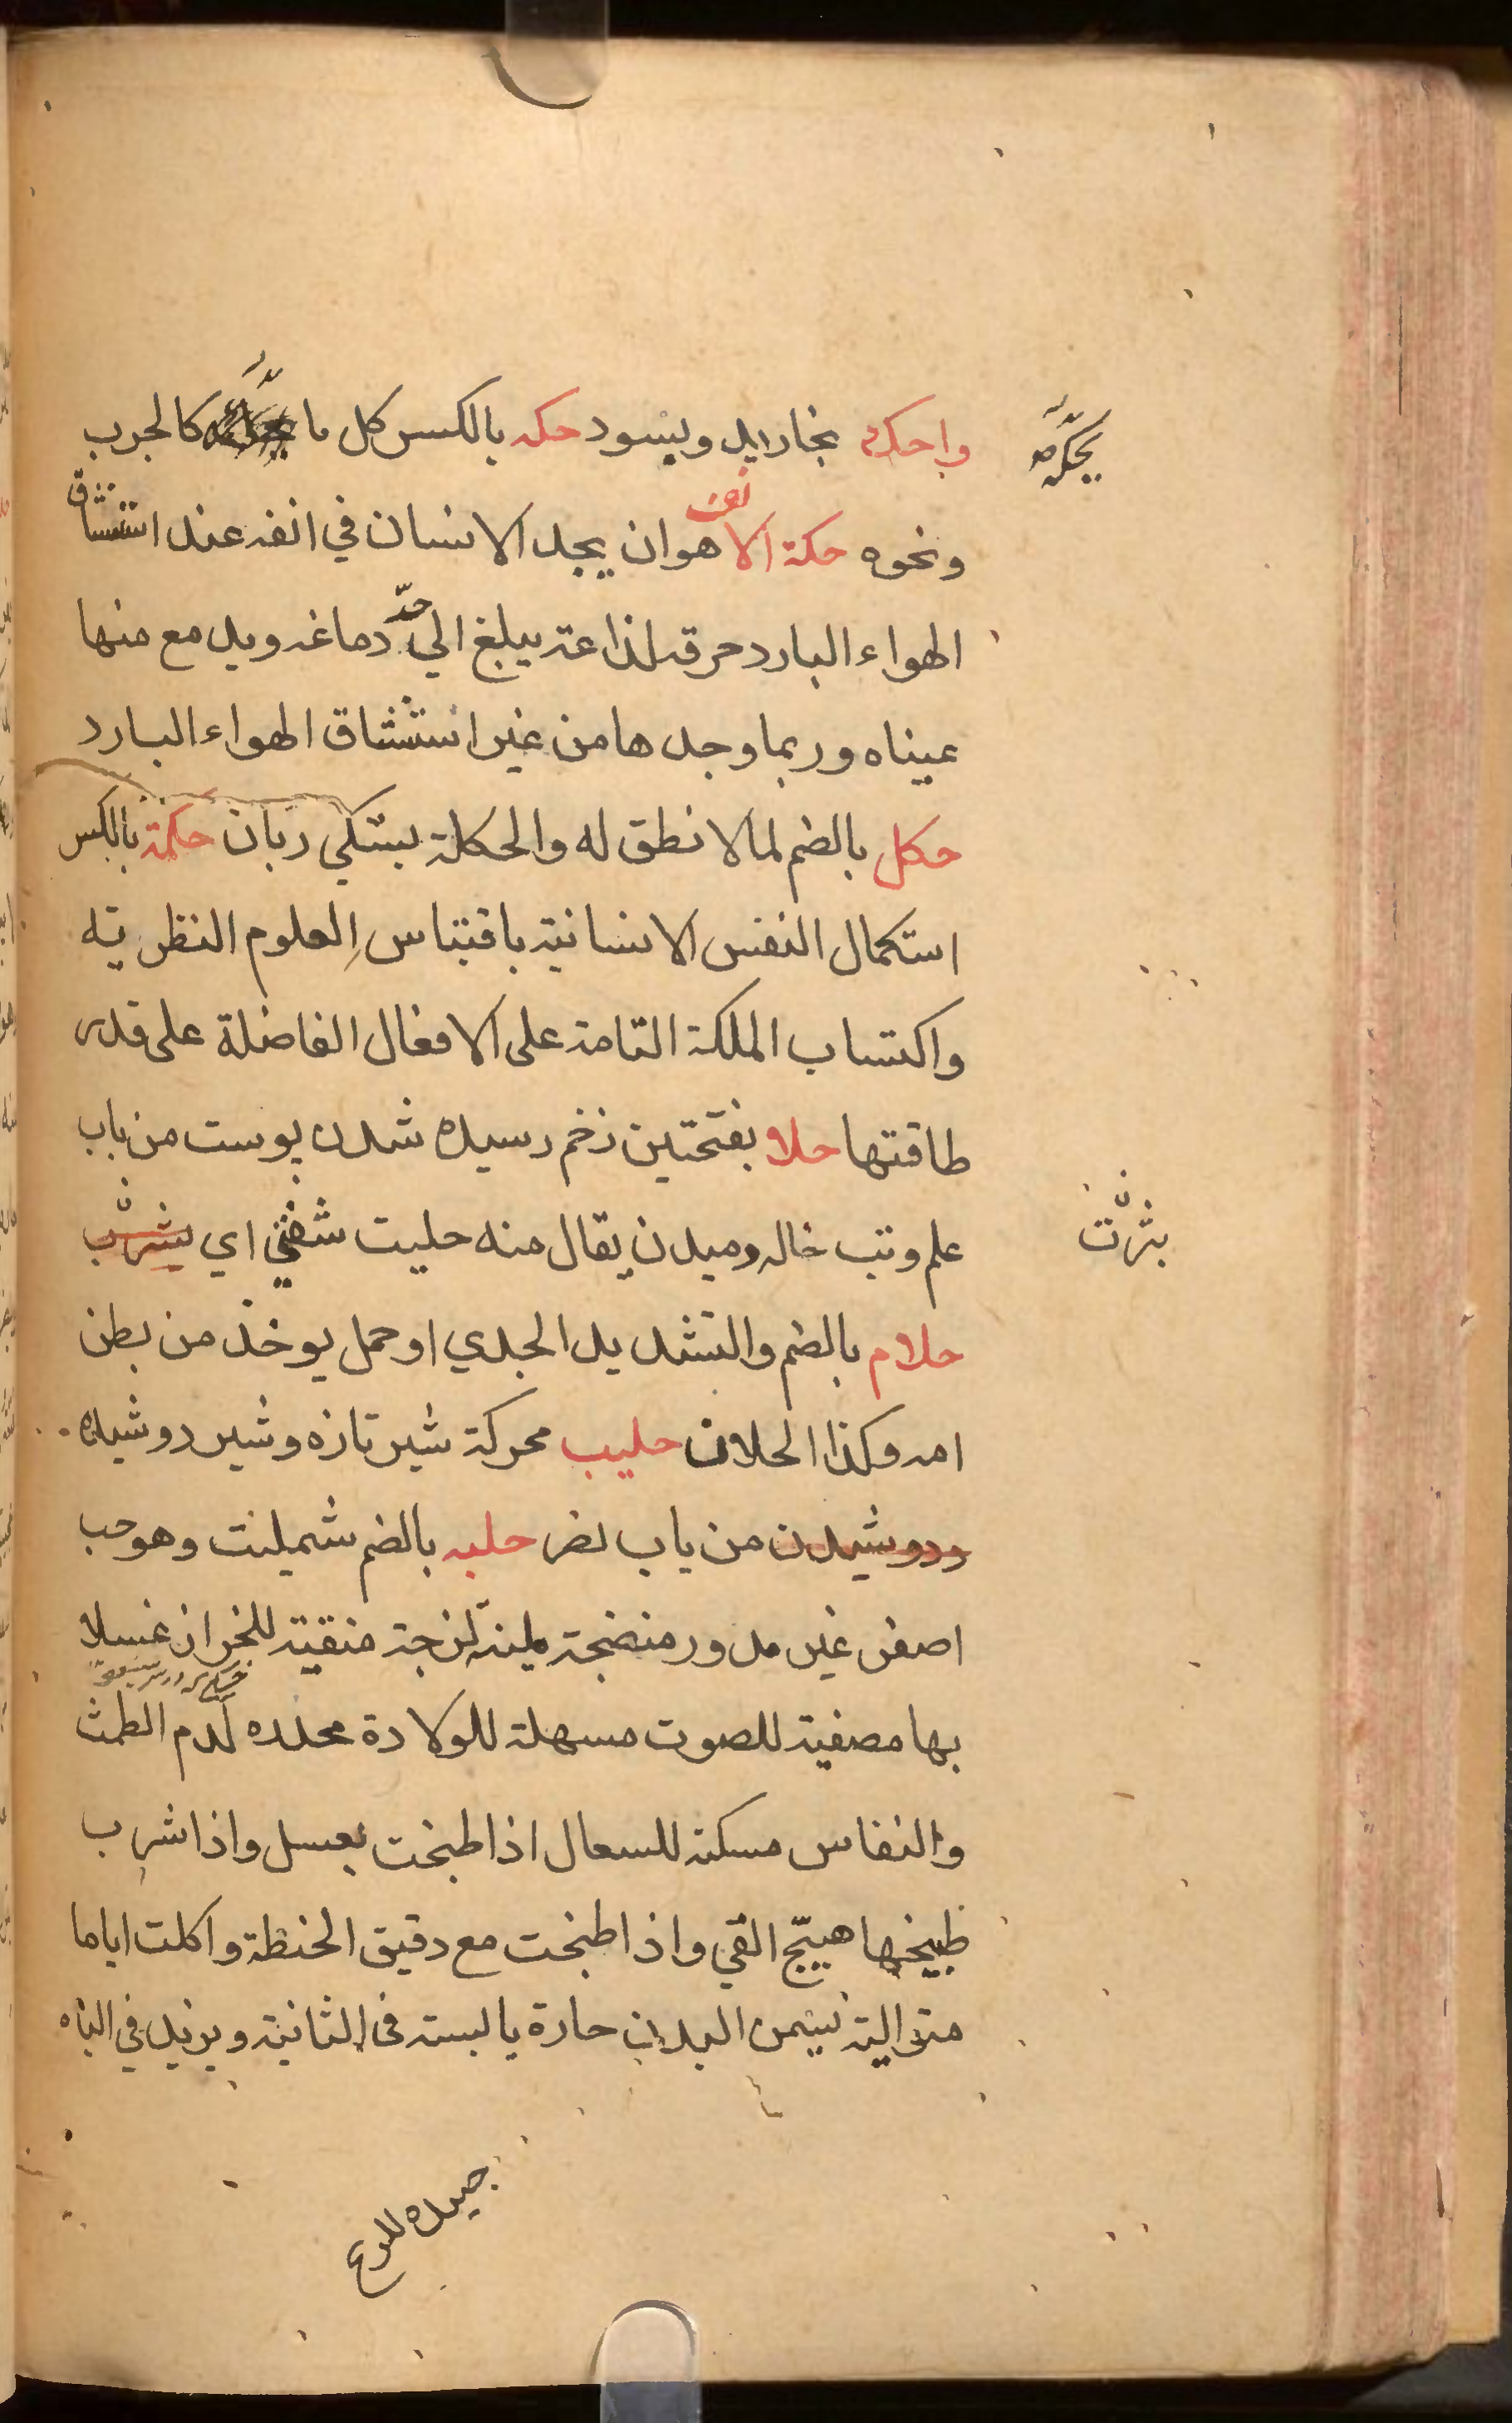 واحكه بخارايد وبسود حكه بالكسر كل ما كالجرب
يحكه صح
ونحوه حكة الانف هوان يجد الانسان في انفه عند استنشاق
الهواء البارد حرقه لذاعة يبلغ الي حدّ دماغه ويدمع منها
عيناه وربما وجدها من غير استنشاق الهواء البارد
حكل بالضم لما لا نطق له والحكلة بستكي زبان حكمة بالكسر
استكمال النفس الانسانية باقتباس العلوم النظريّه
واكتساب الملكة التامة على الافعال الفاضلة على قدر
طاقتها حلا بفتحتين زخم رسيده شدن پوست من باب
علم وتب خاله دميدن يقال منه حليت شفتي اي بثرت
بثرت
حلام بالضم والتشديد الجدي او حمل يوخذ من بطن
امه وكذا الحلان حليب محركة شير تازه وشير دوشيده
ودوشيدن من باب نصر حلبه بالضم شمليت وهو حب
اصفر غير مدور منضجة ملينة لزجة منقية للخراز غسلا
بها مصفية للصوت مسهلة للولادة محدده لدم الطمث
والنفاس مسكنة للسعال اذا طبخت بعسل واذا شرب
طبيخها هيّج القي واذا طبخت مع دقيق الحنطة واكلت اياما
متوالية تسمن البدن حارة يابسته فى الثانية ويزيد في الباه
جيده للدرع